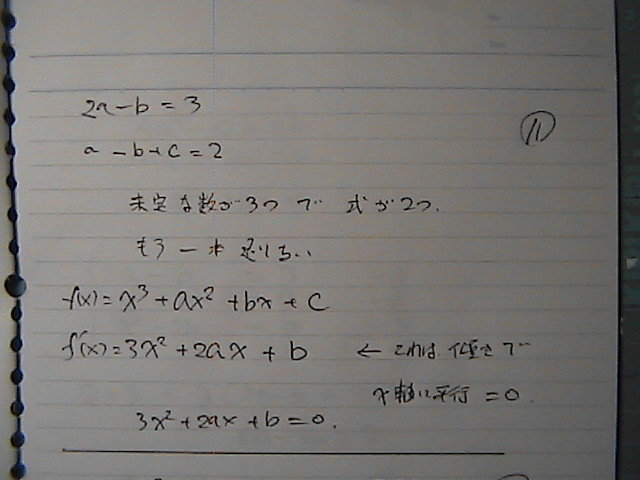 2a-b=3
⑪
a-b+c=2
未定な数が3つで 式が2つ.
もう一本足りない
f(x)=x³+ax²+bx+c
f'(x)=3x²+2ax+b ← これは傾きで
x軸に平行=0.
3x²+2ax+b=0.